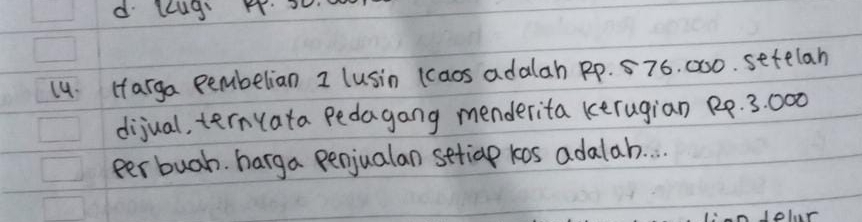 d. Rugi Rp. 30.000
14. Harga Pembelian 1 lusin kaos adalah Rp. 576.000. setelah
dijual, ternyata Pedagang menderita kerugian Rp. 3.000
Perbuah. harga Penjualan setiap kos adalah...
telur